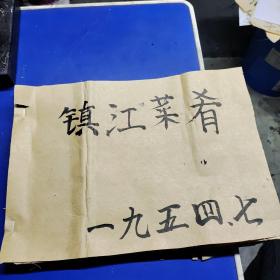 镇江菜肴
一九五四、七